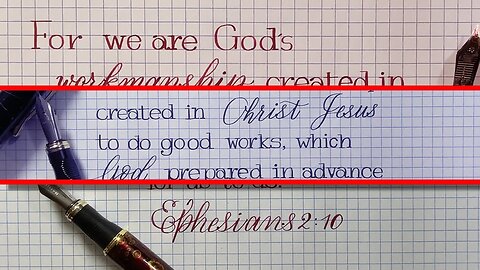 For we are God's
workmanship, created in
created in Christ Jesus
to do good works, which
God prepared in advance
for us to do.
Ephesians 2:10